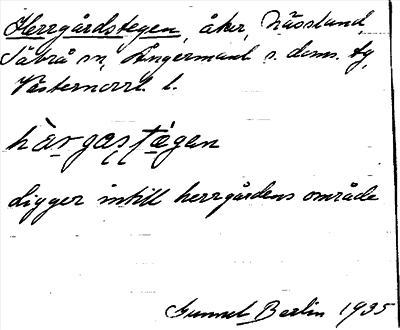 Herrgårdstegen, åker, Nässland,
Säbrå sn, Ångermanl. s. doms. tg,
Västernorrl. l.
hàrgaştègen
Ligger intill herrgårdens område
Gunnel Berlin 1935